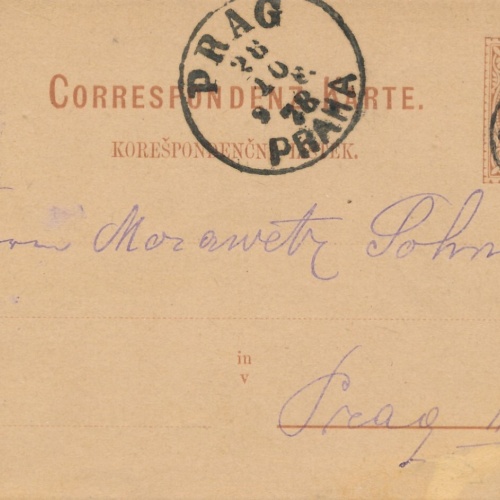 PRAG
78
PRAHA
CORRESPONDENZ-KARTE.
KOREŠPONDENČNÍ LÍSTEK.
Morawetz Sohn
in
v
Prag